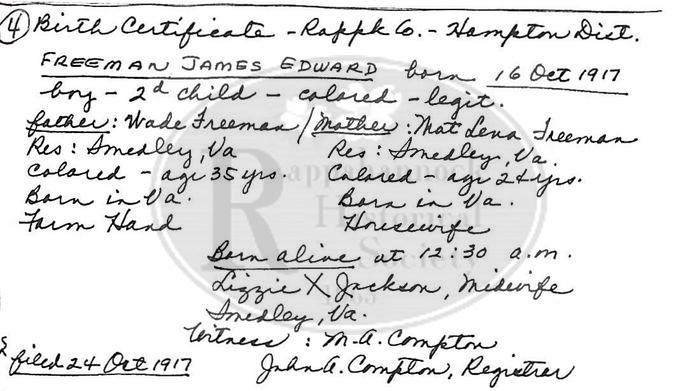 ④ Birth Certificate - Rappk Co. - Hampton Dist.
FREEMAN JAMES EDWARD born 16 Oct 1917
boy - 2d child - colored - legit.
father: Wade Freeman / Mother: Mat Lena Freeman
Res: Smedley, Va Res: Smedley, Va.
Colored - age 35 yrs. Colored - age 24 yrs.
Born in Va. Born in Va.
Farm Hand Housewife
Born alive at 12:30 a.m.
Lizzie X Jackson, Midwife
Smedley, Va.
Witness: M.A. Compton
filed 24 Oct 1917 John A. Compton, Registrar
Rappahannock
Historical
Society